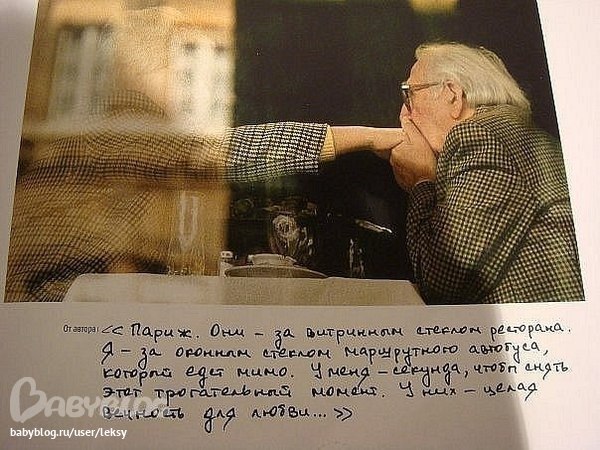 От автора: << Париж. Они – за витринным стеклом ресторана.
Я – за оконным стеклом маршрутного автобуса,
который едет мимо. У меня – секунда, чтобы снять
этот трогательный момент. У них – целая
вечность для любви... >>
BABYBLOG
babyblog.ru/user/leksy